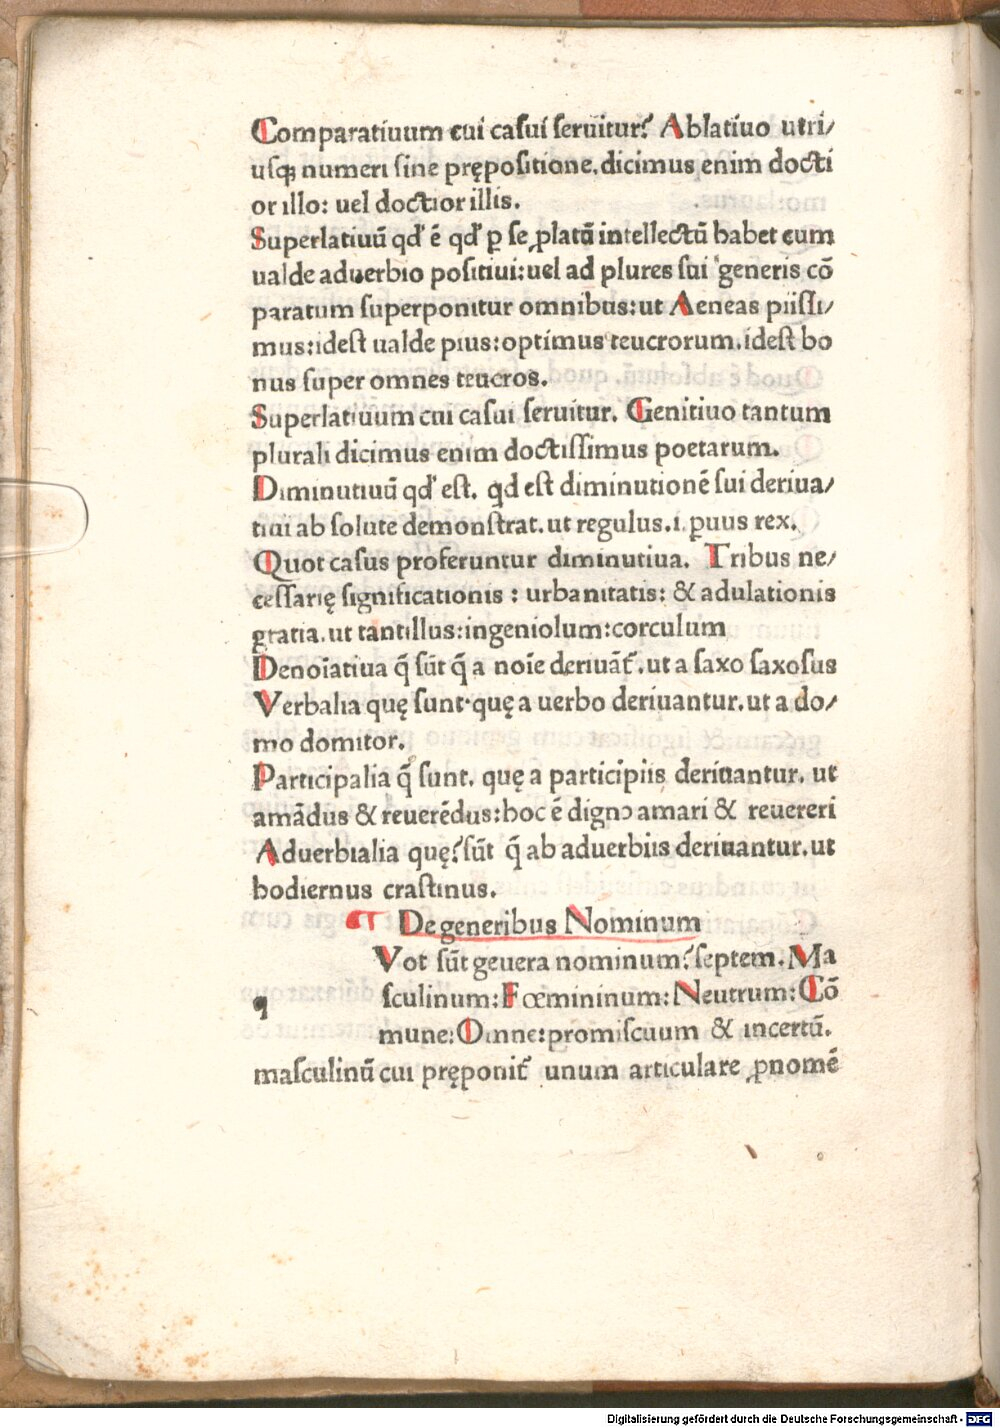 Comparatiuum cui casui seruitur? Ablatiuo utri/
usq; numeri sine prępositione.dicimus enim docti
or illo: uel doctior illis.
Superlatiuū qd' ē qd' ꝑ se ꝓlatū intellectū habet cum
ualde aduerbio positiui:uel ad plures sui generis cō
paratum superponitur omnibus:ut Aeneas piissi/
mus:idest ualde pius:optimus teucrorum.idest bo
nus super omnes teucros.
Superlatiuum cui casui seruitur. Genitiuo tantum
plurali dicimus enim doctissimus poetarum.
Diminutiuū qd' est. qd est diminutionē sui deriua/
tiui ab solute demonstrat.ut regulus.i.ꝑuus rex.
Quot casus proferuntur diminutiua. Tribus ne/
cessarię significationis : urbanitatis: & adulationis
gratia.ut tantillus:ingeniolum:corculum
Denoīatiua q̄ sūt q̄ a noīe deriuāt̄.ut a saxo saxosus
Verbalia quę sunt.quę a uerbo deriuantur.ut a do/
mo domitor.
Participalia q̄ sunt. quę a participiis deriuantur. ut
amādus & reuerēdus:hoc ē digno amari & reuereri
Aduerbialia quę?sūt q̄ ab aduerbiis deriuantur.ut
hodiernus crastinus.
De generibus Nominum
q Vot sūt geuera nominum?septem.Ma
sculinum:Foemininum:Neutrum:Cō
mune:Omne:promiscuum & incertū.
masculinū cui pręponit̄ unum articulare ꝓnomē
Digitalisierung gefördert durch die Deutsche Forschungsgemeinschaft - DFG